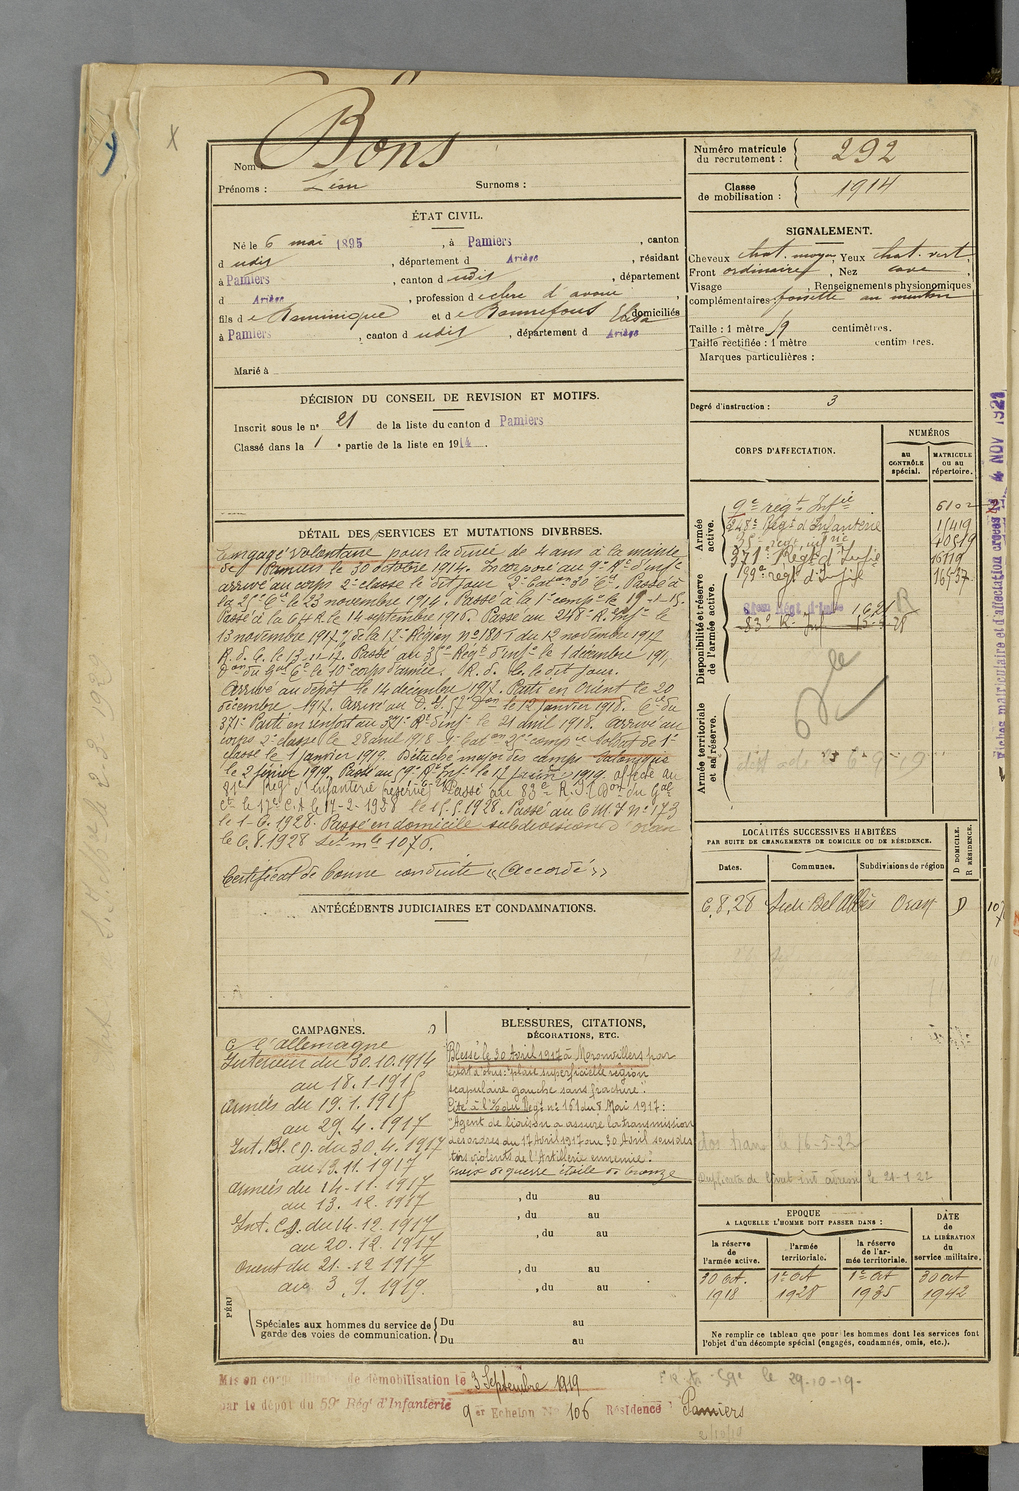 Nom : Bons
Prénoms : Léon Surnoms :
Numéro matricule du recrutement : 292
Classe de mobilisation : 1914
ÉTAT CIVIL.
Né le 6 mai 1895, à Pamiers, canton
dudit, département d Ariège, résidant
à Pamiers, canton dudit, département
d Ariège, profession de clerc d'avoué,
fils de Dominique et de Bonnefous Elisa domiciliés
à Pamiers, canton dudit, département d Ariège
Marié à
SIGNALEMENT.
Cheveux chat. moyen, Yeux chat. vert
Front ordinaire, Nez cave,
Visage , Renseignements physionomiques
complémentaires : fossette au menton
Taille : 1 mètre 59 centimètres.
Taille rectifiée : 1 mètre centimètres.
Marques particulières :
Degré d'instruction : 3
DÉCISION DU CONSEIL DE REVISION ET MOTIFS.
Inscrit sous le n° 21 de la liste du canton d Pamiers
Classé dans la 1e partie de la liste en 1914.
CORPS D'AFFECTATION.
NUMÉROS
au CONTRÔLE spécial.
MATRICULE ou au répertoire.
Armée active.
9e régt Infie 6102
248e Régt d'Infanterie 15419
371e Régt d'Infie 16119
Disponibilité et réserve de l'armée active.
83e R. Inf
Armée territoriale et sa réserve.
DÉTAIL DES SERVICES ET MUTATIONS DIVERSES.
Engagé volontaire pour la durée de 4 ans à la mairie
de Pamiers le 30 octobre 1914. Incorporé au 9e Rt d'Infie
arrivé au corps 2e classe le dit jour. 9e Baton 30e Cie. Passé à
la 25e Cie le 23 novembre 1914. Passé à la 1e compie le 19-1-15.
Passé à la C.H.R. le 14 septembre 1916. Passé au 248e R. Infie le
13 novembre 1917 de la 17e Région N° 1801 du 12 novembre 1917
Don du Gal Ct le 10e corps d'armée, R.d.C. le dit jour.
Arrivé au dépôt le 14 décembre 1917. Parti en Orient le 20
décembre 1917. le 12 janvier 1918.
371e Parti en renfort au 371e Rt d'Infie le 21 avril 1918. Arrivé au
corps 2e classe le 28 avril 1918. Soldat de 1e
classe le 1 janvier 1919. Détaché major des camps Salonique
le 2 février 1919. Passé au 59e Rt Infie le 17 juin 1919. affecté au
81e Régt d'infanterie réserve. Passé au 83e R.I. Don du Gal
Ct le 17e C.A. le 17-2-1928. Passé au C M I n° 173
le 1-6-1928. Passé en domicile subdivision d'Oran
le 6.8.1928 sér mle 1076.
Certificat de bonne conduite « Accordé »
LOCALITÉS SUCCESSIVES HABITÉES
PAR SUITE DE CHANGEMENTS DE DOMICILE OU DE RÉSIDENCE.
Dates. Communes. Subdivisions de région D DOMICILE. R RÉSIDENCE.
6.8.28 Sidi Bel Abbès Oran D
ANTÉCÉDENTS JUDICIAIRES ET CONDAMNATIONS.
CAMPAGNES.
C l'allemagne
Intérieur du 30.10.1914
au 18.1.1915
armées du 19.1.1915
au 29.4.1917
Int. Bl. C.D. du 30.4.1917
au 13.11.1917
armées du 14.11.1917
au 13.12.1917
Int. C.D. du 14.12.1917
au 20.12.1917
Orient du 21.12.1917
au 3.9.1919.
BLESSURES, CITATIONS,
DÉCORATIONS, ETC.
Blessé le 30 Avril 1917 à Moronvillers par
éclat d'obus : "plaie superficielle région
scapulaire gauche sans fracture".
Cité à l'o/ du Régt n° 161 du 8 Mai 1917 :
"Agent de liaison a assuré la transmission
des ordres du 17 Avril 1917 au 30 Avril sous des
tirs violents de l'Artillerie ennemie."
Croix de guerre étoile de bronze
, du au
, du au
, du au
, du au
, du au
Spéciales aux hommes du service de garde des voies de communication.
Du au
Du au
le 16-5-22
Duplicata de livret le 21-1-22
EPOQUE
A LAQUELLE L'HOMME DOIT PASSER DANS :
la réserve de l'armée active. l'armée territoriale. la réserve de l'armée territoriale. DATE de LA LIBÉRATION du service militaire.
30 oct. 1918 1er oct 1928 1er oct 1935 30 oct 1942
Ne remplir ce tableau que pour les hommes dont les services font
l'objet d'un décompte spécial (engagés, condamnés, omis, etc.).
Mis en congé illimité de démobilisation le 3 Septembre 1919
par le dépôt du 59e Régt d'Infanterie 9er Echelon No 106 Résidence : Pamiers
le 29-10-19